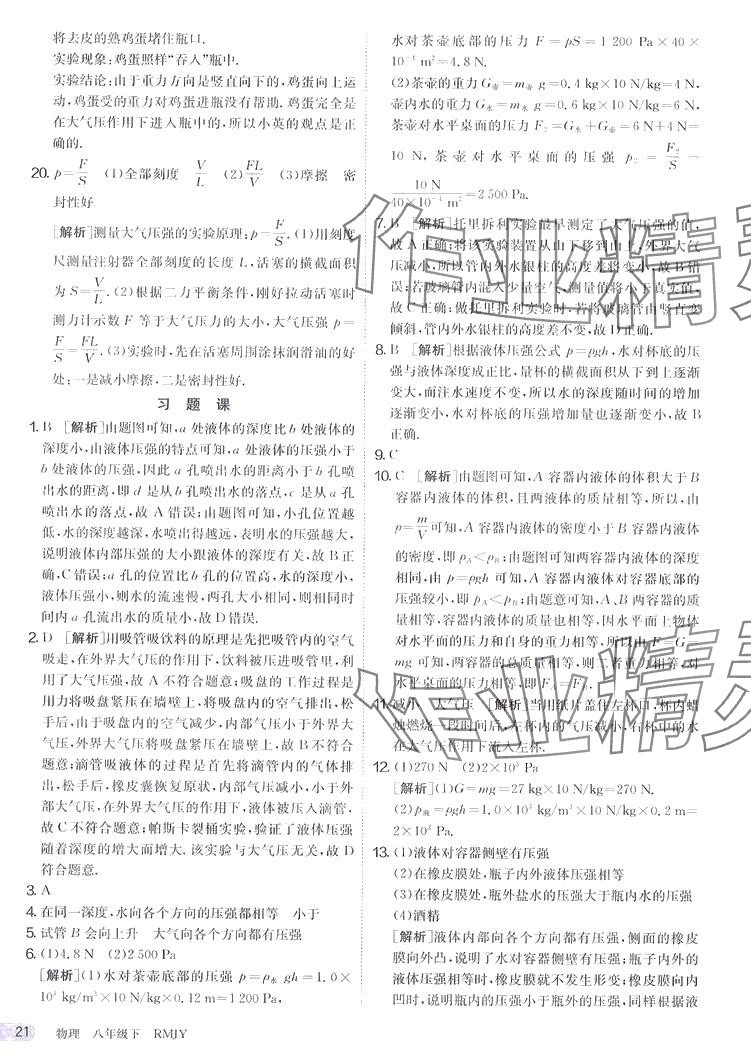 将去皮的熟鸡蛋堵住瓶口.
实验现象:鸡蛋照样“吞入”瓶中.
实验结论:由于重力方向是竖直向下的,鸡蛋向上运
动,鸡蛋受的重力对鸡蛋进瓶没有帮助.鸡蛋完全是
在大气压作用下进入瓶中的,所以小英的观点是正
确的.
20. p=F/S (1)全部刻度 V/L (2)FL/V (3)摩擦 密
封性好
[解析]测量大气压强的实验原理:p=F/S.(1)用刻度
尺测量注射器全部刻度的长度 L,活塞的横截面积
为 S=V/L.(2)根据二力平衡条件,刚好拉动活塞时
测力计示数 F 等于大气压力的大小,大气压强 p=
FL/V.(3)实验时,先在活塞周围涂抹润滑油的好
处:一是减小摩擦,二是密封性好.
习 题 课
1. B [解析]由题图可知,a 处液体的深度比 b 处液体的
深度小,由液体压强的特点可知,a 处液体的压强小于
b 处液体的压强,因此 a 孔喷出水的距离小于 b 孔喷
出水的距离,即 d 是从 b 喷出水的落点,c 是从 a 孔
喷出水的落点,故 A 错误;由题图可知,小孔位置越低,
水的深度越深,水喷出得越远,表明水的压强越大,
说明液体内部压强的大小跟液体的深度有关,故 B 正
确,C 错误;a 孔的位置比 b 孔的位置高,水的深度小,
液体压强小,则水的流速慢,两孔大小相同,则相同时
间内 a 孔流出水的质量小,故 D 错误.
2. D [解析]用吸管吸饮料的原理是先把吸管内的空气
吸走,在外界大气压的作用下,饮料被压进吸管里,利
用了大气压强,故 A 不符合题意;吸盘的工作过程是
用力将吸盘紧压在墙壁上,将吸盘内的空气排出,松
手后,由于吸盘内的空气减少,内部气压小于外界大
气压,外界气压将吸盘紧压在墙壁上,故 B 不符合
题意;滴管吸液体的过程是首先将滴管内的气体排
出,松手后,橡皮囊恢复原状,内部气压减小,小于外
界大气压,在外界大气压的作用下液体被压入滴管,
故 C 不符合题意;帕斯卡裂桶实验,验证了液体压强
随着深度的增大而增大.该实验与大气压无关,故 D
符合题意.
3. A
4. 在同一深度,水向各个方向的压强都相等 小于
5. 试管 B 会向上升 大气向各个方向都有压强
6. (1)4.8 N (2)2 500 Pa
[解析](1)水对茶壶底部的压强 p=ρ水 gh=1.0×
10³ kg/m³×10 N/kg×0.12 m=1 200 Pa,
水对茶壶底部的压力 F=pS=1 200 Pa×40×
10⁻⁴ m²=4.8 N.
(2)茶壶的重力 G壶=m壶 g=0.4 kg×10 N/kg=4 N,
壶内水的重力 G水=m水 g=0.6 kg×10 N/kg=6 N,
茶壶对水平桌面的压力 F₂=G水+G壶=6 N+4 N=
10 N,茶壶对水平桌面的压强 p₂=F₂/S=
10 N/(40×10⁻⁴ m²)=2 500 Pa.
7. B [解析]托里拆利实验最早测定了大气压强的值,
故 A 正确;将该实验装置从山下移到山上,外界大气
压减小,所以管内外水银柱的高度差将变小,故 B 错
误;若玻璃管内混入少量空气,测量值将小于真实值,
故 C 正确;做托里拆利实验时,若将玻璃管由竖直变
倾斜,管内外水银柱的高度差不变,故 D 正确.
8. B [解析]根据液体压强公式 p=ρgh,水对杯底的压
强与液体深度成正比,量杯的横截面积从下到上逐渐
变大,而注水速度不变,所以水的深度随时间的增加
逐渐变小,水对杯底的压强增加量也逐渐变小,故 B
正确.
9. C
10. C [解析]由题图可知,A 容器内液体的体积大于 B
容器内液体的体积,且两液体的质量相等,所以,由
ρ=m/V可知,A 容器内液体的密度小于 B 容器内液体
的密度,即 ρA<ρB;由题图可知两容器内液体的深度
相同,由 p=ρgh 可知,A 容器内液体对容器底部的
压强较小,即 pA<pB;由题意可知,A、B 两容器的质
量相等,容器内液体的质量也相等,因水平面上物体
对水平面的压力和自身的重力相等,所以,由 F=G=
mg 可知,两容器的总质量相等,则二者重力、压力
相等,即 F₁=F₂.
11. 减小 大气压 [解析]当用纸片盖住左杯且,杯内蜡
烛燃烧一段时间后,左杯内的气压减小,右杯中的水
在大气压作用下流入左杯.
12. (1)270 N (2)2×10³ Pa
[解析](1)G=mg=27 kg×10 N/kg=270 N.
(2)p液=ρgh=1.0×10³ kg/m³×10 N/kg×0.2 m=
2×10³ Pa.
13. (1)液体对容器侧壁有压强
(2)在橡皮膜处,瓶子内外液体压强相等
(3)在橡皮膜处,瓶外盐水的压强大于瓶内水的压强
(4)酒精
[解析]液体内部向各个方向都有压强,侧面的橡皮
膜向外凸,说明了水对容器侧面有压强;瓶子内外的
液体压强相等时,橡皮膜就不发生形变;橡皮膜向内
凹时,说明瓶外液体的压强大于瓶内的压强,同样根据液
21 物理 八年级下 RMJY
作业精灵
作业精灵